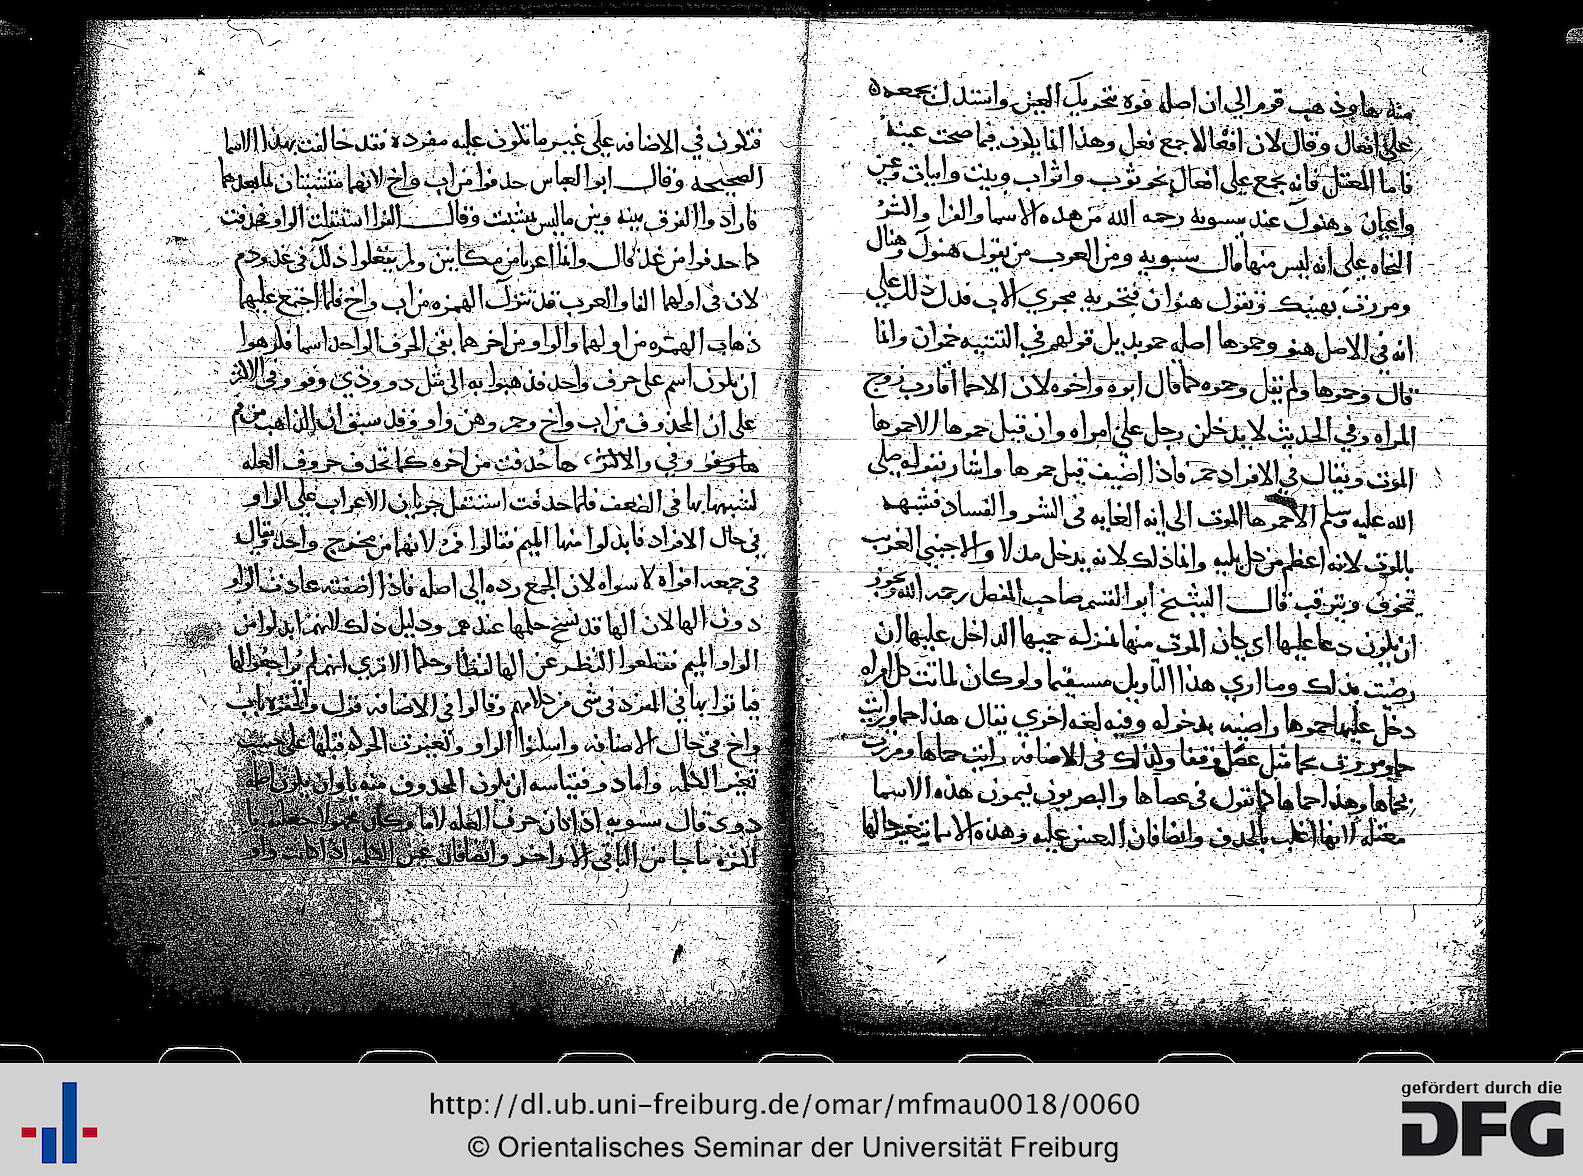 منه هاوذهب قوم الي ان اصله فوه بتحريك العين واستدل بجمعه
علي افعال وقال لان افعالا جمع فعل وهذا انما يكون فيما صحت عينه
فاما المعتل فانه يجمع علي افعال نحو ثوب واثواب وبيت وابيات وعين
واعيان وهنوك عند سيبويه رحمه الله من هذه الاسما والفرا واكثر
النحاه علي انه ليس منها قال سيبويه ومن العرب من يقول هنوك وهناك
ومررت بهنيك وتقول هنوان فتجريه مجري الاب فدل ذلك علي
انه في الاصل هنو وحموها اصله حمو بدليل قولهم في التثنيه حموان وانما
قال وحموها ولم يقل وحموه كما قال ابوه واخوه لان الاحما اقارب زوج
المراه وفي الحديث لا يدخلن رجل علي امراه وان قيل حموها الا حموها
الموت ويقال في الافراد حم فاذا اضيف قيل حموها واشار بقوله صلي
الله عليه وسلم الا حموها الموت الي انه الغايه في الشر والفساد فشبهه
بالموت لانه اعظم من كل بليه وانما ذلك لانه يدخل مدلا والاجنبي الغريب
متخوف ويترقب قال الشيخ ابو القسم صاحب المفصل رحمه الله يجوز
ان يكون دعا عليها اي كان الموت منها بمنزلة حميها الداخل عليها ان
رضيت بذلك وما اري هذا التاويل مستقيما ولو كان لماتت كل امراه
دخل عليها حموها راضيه بدخوله وفيه لغه اخري يقال هذا حما ورايت
حما ومررت بحما مثل عصا وقفا وكذلك في الاضافه رايت حماها ومررت
بحماها وهذا حماها كما تقول في عصاها والبصريون يسمون هذه الاسما
معتله لانها اعلت بالحذف وايضا فان العين عليه وهذه الاسما تتغير حالها
فتكون في الاضافه علي غير ما تكون عليه مفرده فقد خالفت بهذا الاسما
الصحيحه وقال ابو العباس حذفوا من اب واخ لانهما مشبهتان بما بعدهما
فارادوا الفرق بينه وبين ما ليس مشبت وقال الفرا استثقلت الواو فحذفت
كما حذفوا من غد قال وانما اعربا من مكانين ولم يفعلوا ذلك في غد ودم
لان في اولهما الفا والعرب قد تترك الهمزه من اب واخ فلما اجتمع عليهما
ذهاب الهمزه من اولهما والواو من اخرهما بقي الحرف الواحد اسما فكرهوا
ان يكون اسم علي حرف واحد فذهبوا به الي مثل دو وذي وفو وفي الاكثر
علي ان المحذوف من اب واخ وحم وهن واو وقد سبق ان الذاهب من فم
ها وفو وفي والاكثر ها حذفت من اخره كما تحذف حروف العله
لشبهها بها في الضعف فلما حذفت استثقل جريان الاعراب علي الواو
في حال الافراد فابدلوا منها الميم فقالوا فم لانهما من مخرج واحد وقال
في جمعه افواه لا سواه لان الجمع رده الي اصله فاذا اضفته عادت الواو
دون الها لان الها قد نسخ حكمها عندهم ودليل ذلك لانهم ابدلوا من
الواو الميم فقطعوا النظر عن الها لفظا وحكما الا تري انهم لم يراجعوا الها
فياتوا بها في المفرد في شي من كلامهم وقالوا في الاضافه قول والمفرده اب
واخ في حال الاضافه واسكنوا الواو وتغيرت الحركه قبلها علي حسب
تغير العله واما دو فقياسه ان يكون المحذوف منه يا وان يكون اصله
دوي قال سيبويه اذا كان حرف العله لاما وكان
اكثره ما جا من الباقي الاواخر وايضا فان عين الكلمه اذا كانت واو
http://dl.ub.uni-freiburg.de/omar/mfmau0018/0060
© Orientalisches Seminar der Universität Freiburg
gefördert durch die
DFG